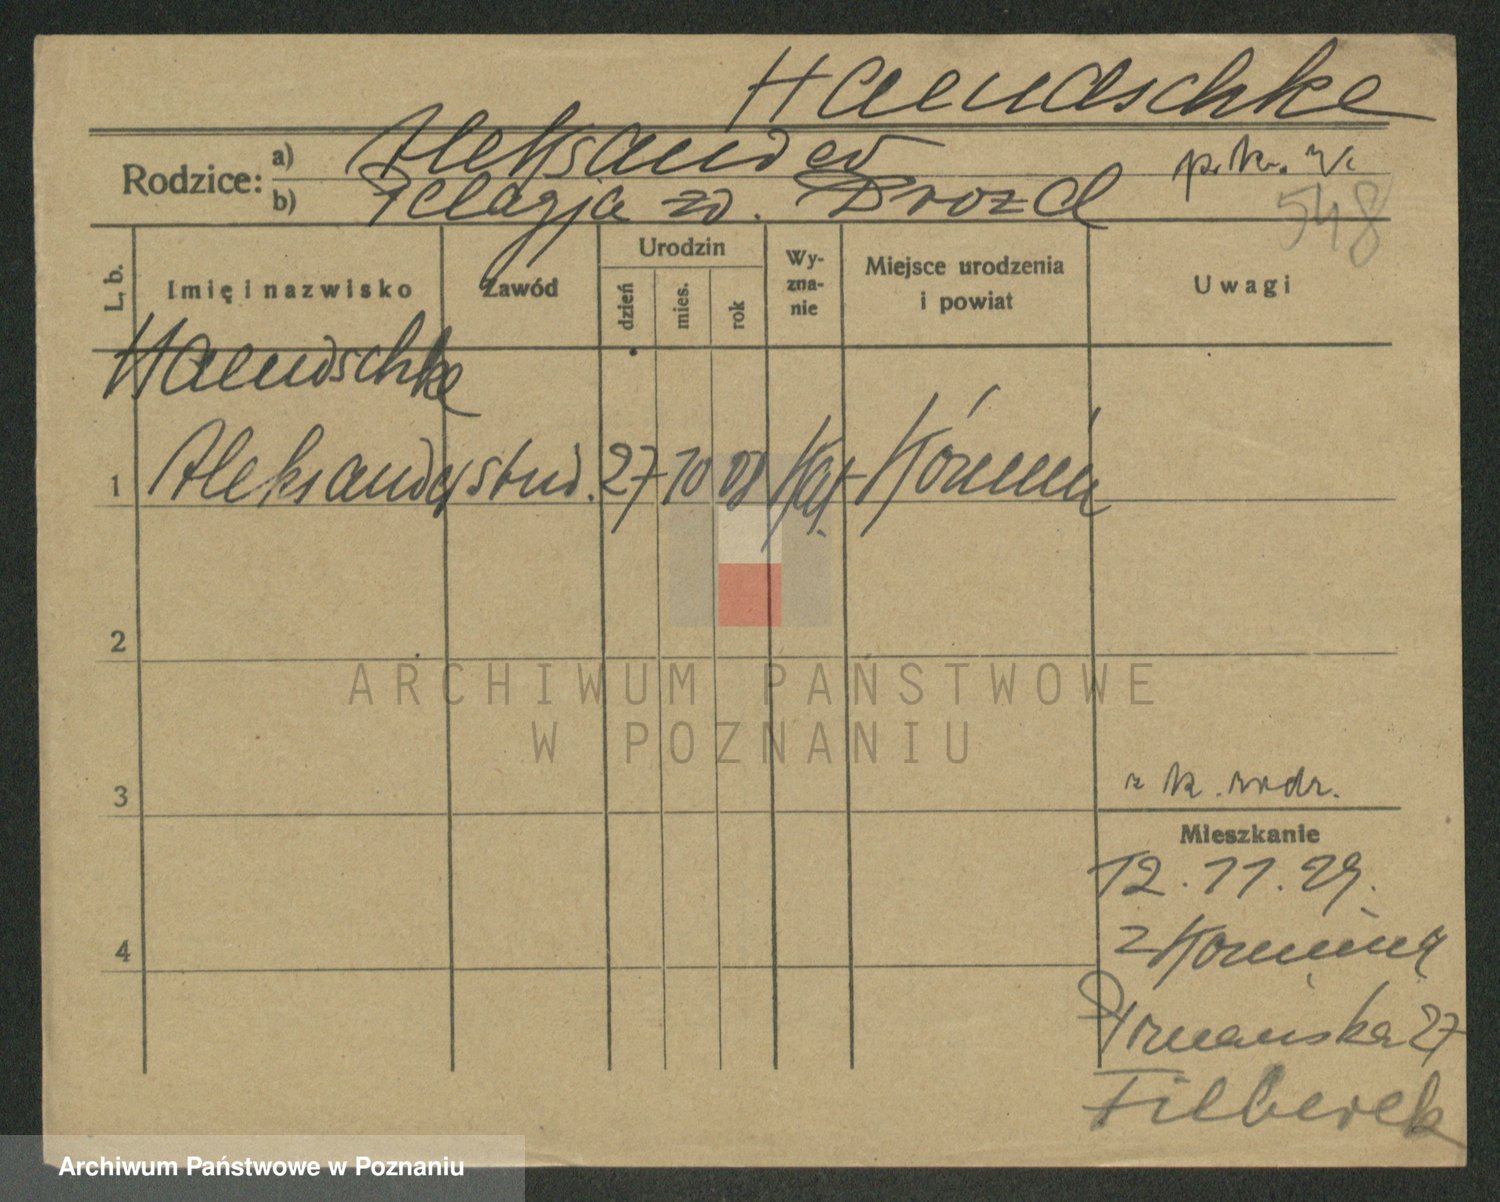 Haendschke
Rodzice: a) Aleksander
b) Pelagja zd. Drozd
548
L. b. Imię i nazwisko Zawód Urodzin dzień mies. rok Wyznanie Miejsce urodzenia i powiat Uwagi
Haendschke
1 Aleksander stud. 27 10 08 Kat Koźmin
2
3
Mieszkanie
12.11.29.
4
z Koźmina
Poznańska 27
Filberek
ARCHIWUM PAŃSTWOWE
W POZNANIU
Archiwum Państwowe w Poznaniu